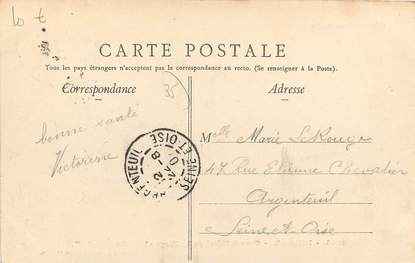 10 t
CARTE POSTALE
Tous les pays étrangers n'acceptent pas la correspondance au recto. (Se renseigner à la Poste).
Correspondance
35
Adresse
bonne santé
Victorine
ARGENTEUIL
SEINE-ET-OISE
Melle Marie LeRouge
47 Rue Etienne Chevalier
Argenteuil
Seine et Oise